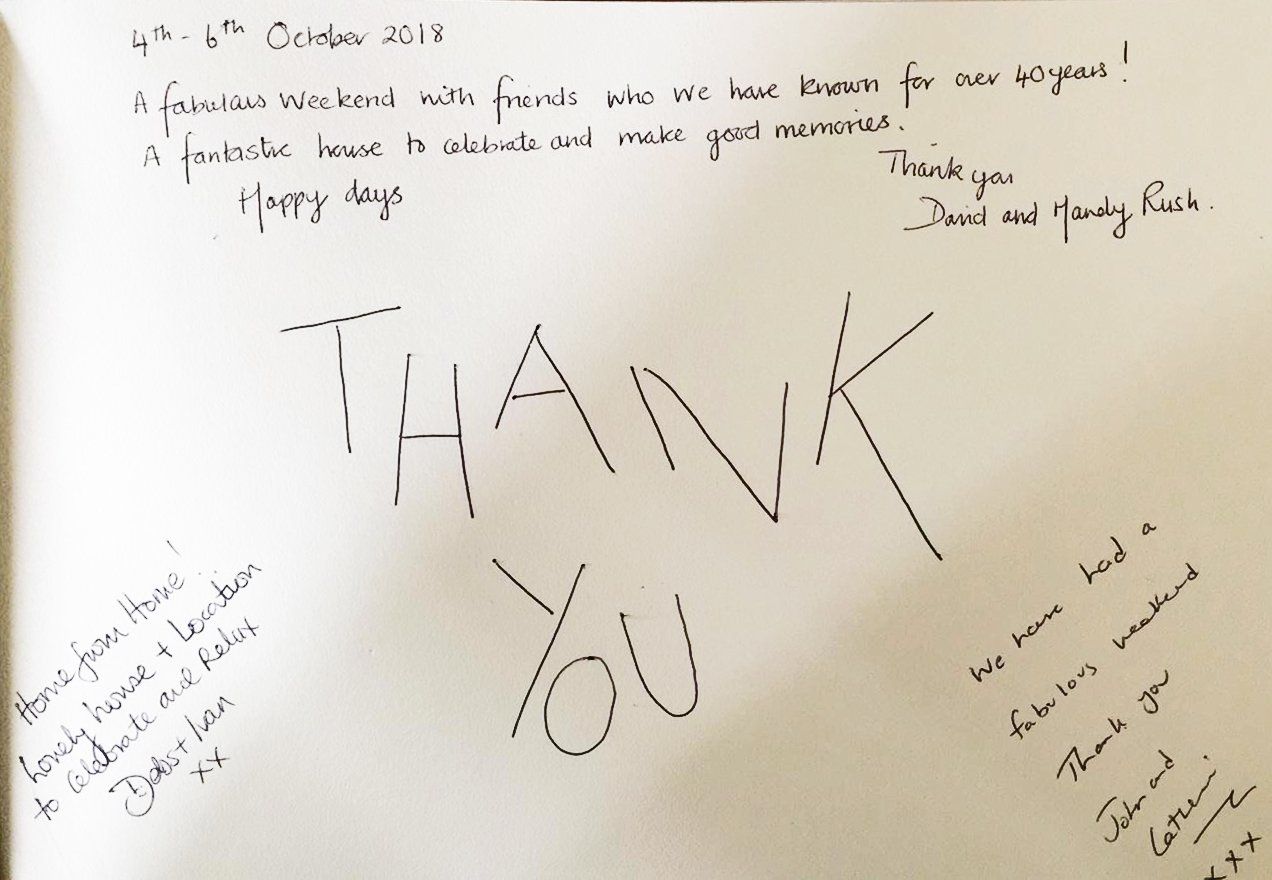 4th - 6th October 2018
A fabulous weekend with friends who we have known for over 40 years!
A fantastic house to celebrate and make good memories.
Happy days
Thank you
David and Mandy Rush.
THANK
YOU
Home from Home!
Lovely house + Location
to celebrate and Relax
Debs + Ivan
xx
We have had a
fabulous weekend
Thank you
John and
xxx